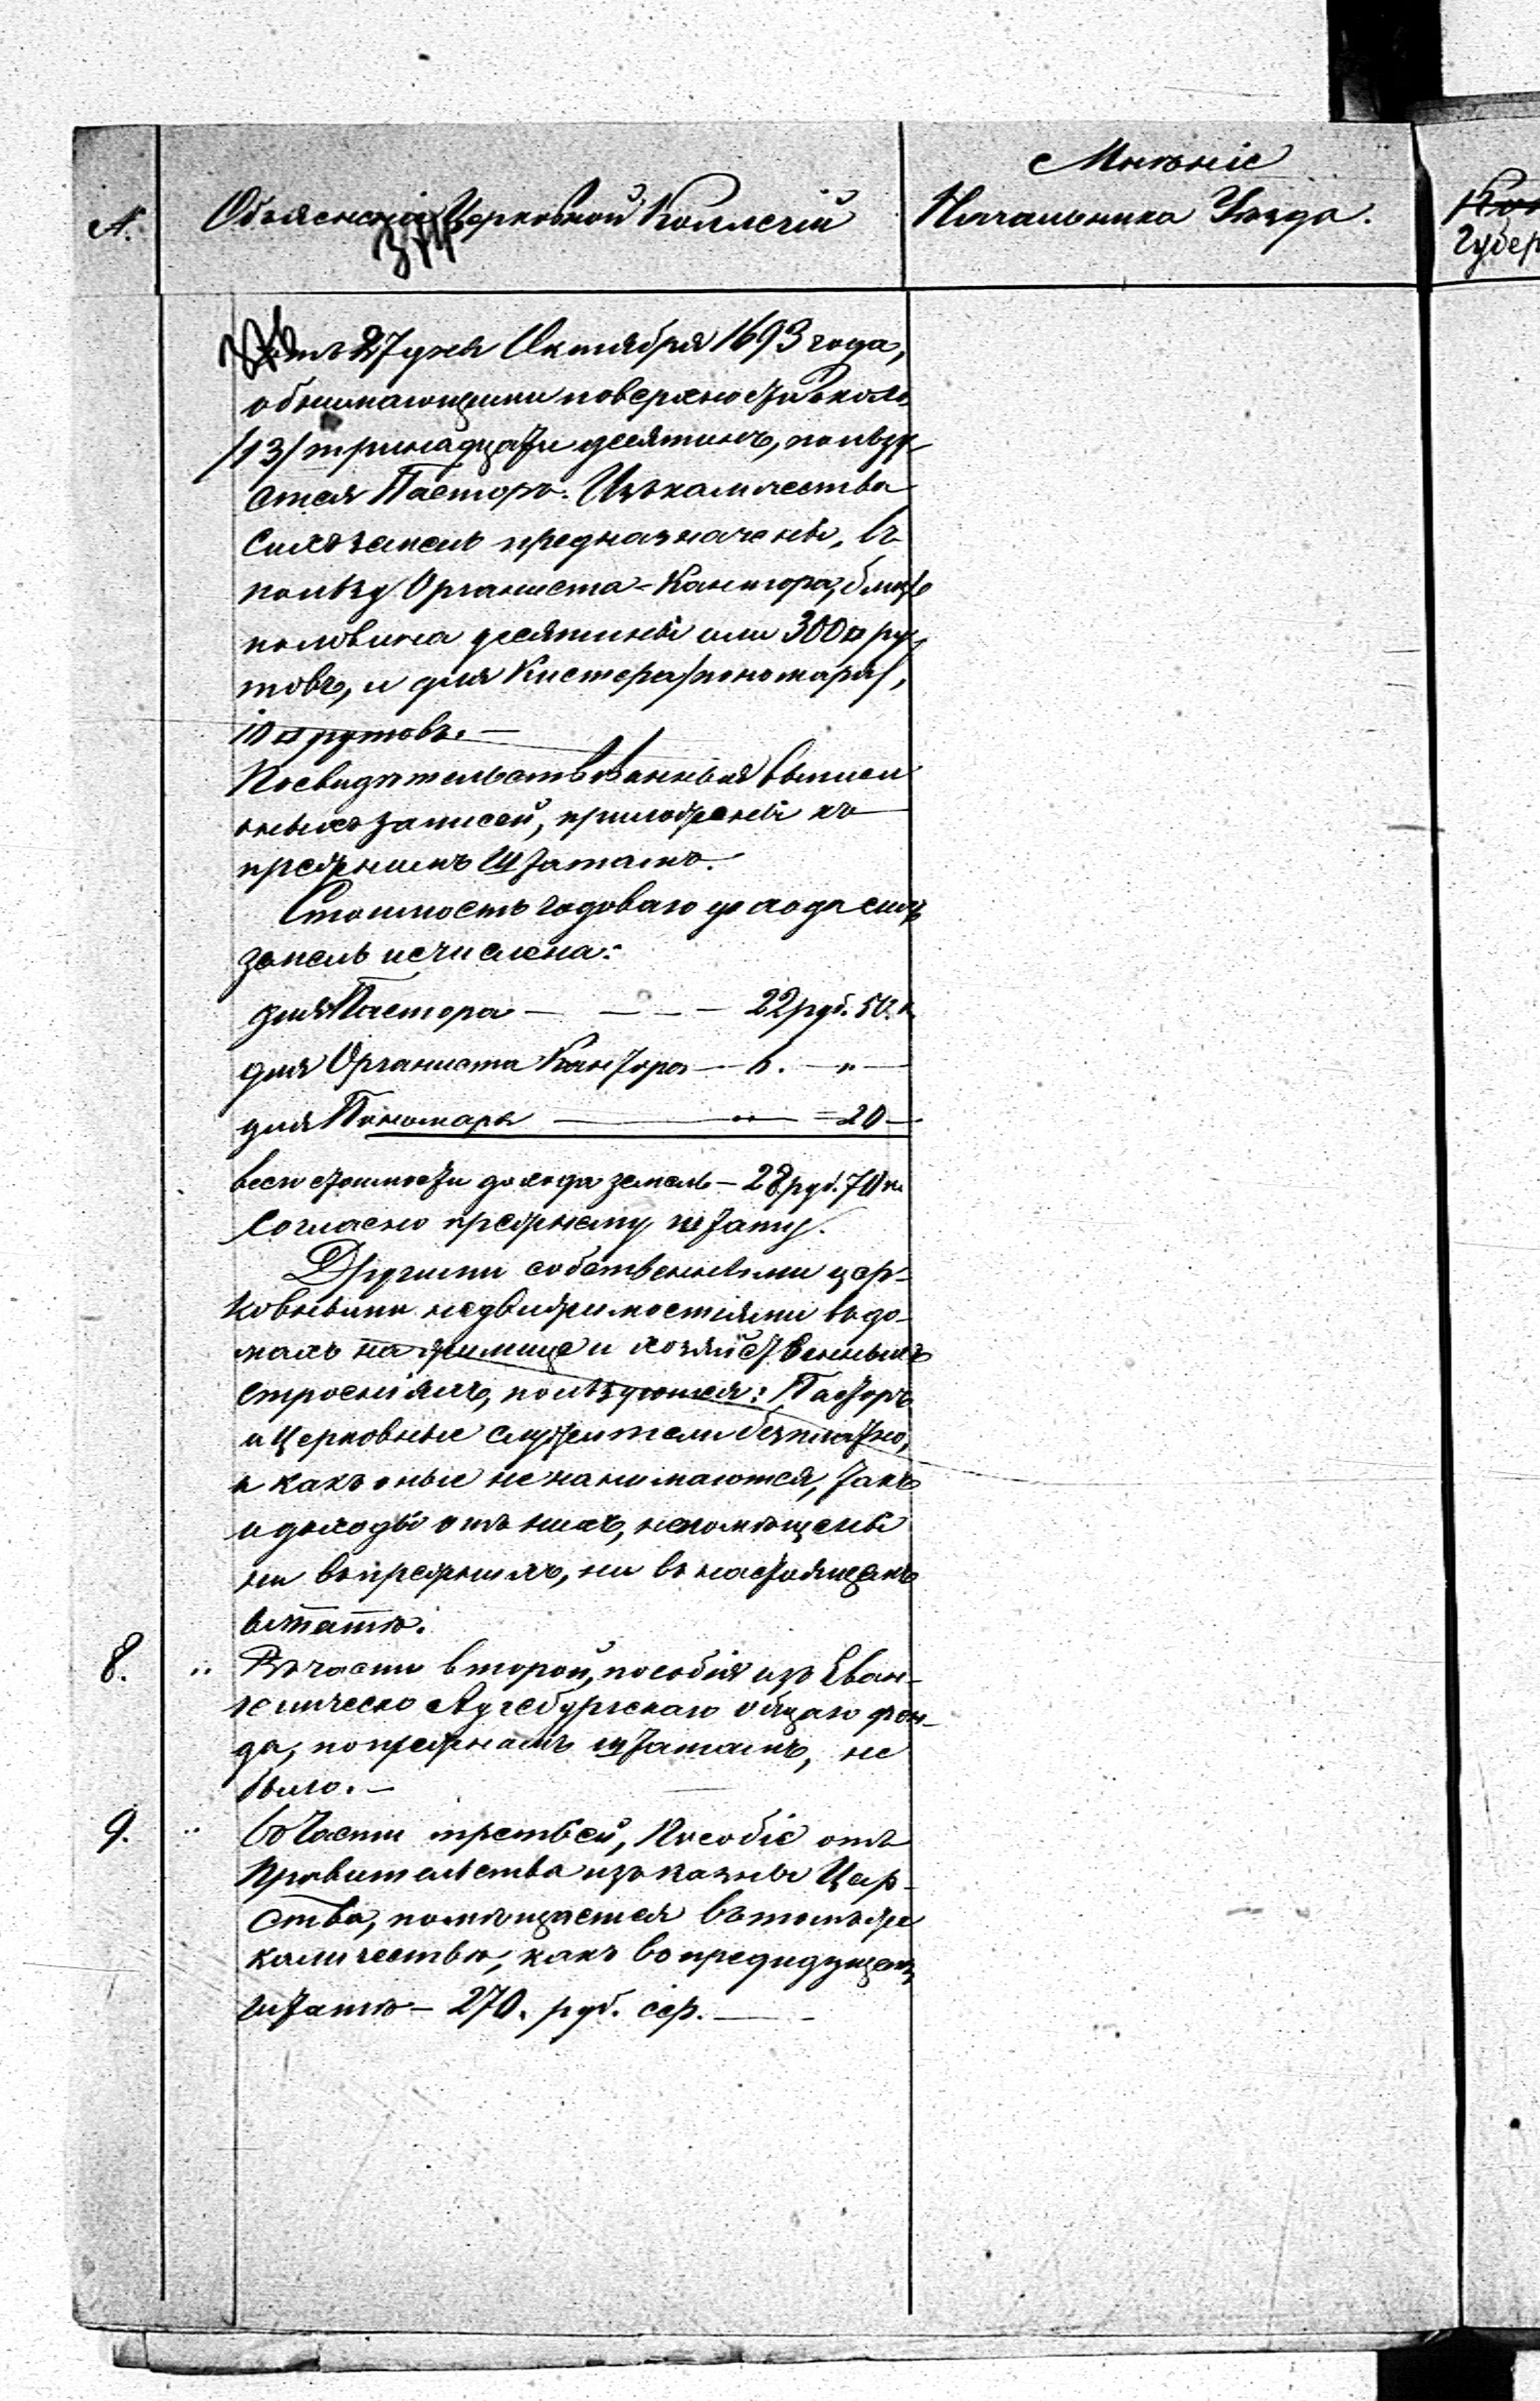 Мнѣніе
№. Объясненія Церковной Коллегіи Начальника Уѣзда.
губер
отъ 27 дня Октября 1693 года,
обнимающими поверхности около
/13/ тринадцати десятинъ, пользу-
ется Пасторъ. Изъ количества
сихъ земель предназначены, въ
пользу Органиста-Кантора,
половина десятины или 300 □ пру-
товъ, и для Кистера /пономаря/,
10 □ прутовъ.—
Посвидѣтельствованныя выписи
оныхъ записей, приложены къ
прежнимъ Штатамъ.
Стоимость годоваго дохода сихъ
земель исчислена:
для Пастора — — — 22 руб. 50 к.
для Органиста Кантора — 6. — „ —
для Пономаря — „ = 20 —
всей стоимости дохода земель — 28 руб. 70 к.
Согласно прежнему штату.
Другими собственными цер-
ковными недвижимостями въ до-
махъ на жилище и хозяйственныхъ
строеніяхъ, пользуются: Пасторъ
и Церковные служители безплатно,
и какъ оные не нанимаются, такъ
и доходы отъ нихъ, непомѣщены
ни въ прежнихъ, ни въ настоящемъ
штатѣ.
8. „ Въ части второй, пособія изъ Еван-
гелическо Аугсбургскаго общаго фон-
да, по прежнимъ штатамъ, не
было.—
9. „ Въ Части третьей, Пособіе отъ
Правительства изъ казны Цар-
ства, помѣщается въ томъ же
количествѣ, какъ въ предидущемъ
штатѣ — 270. руб. сер. —